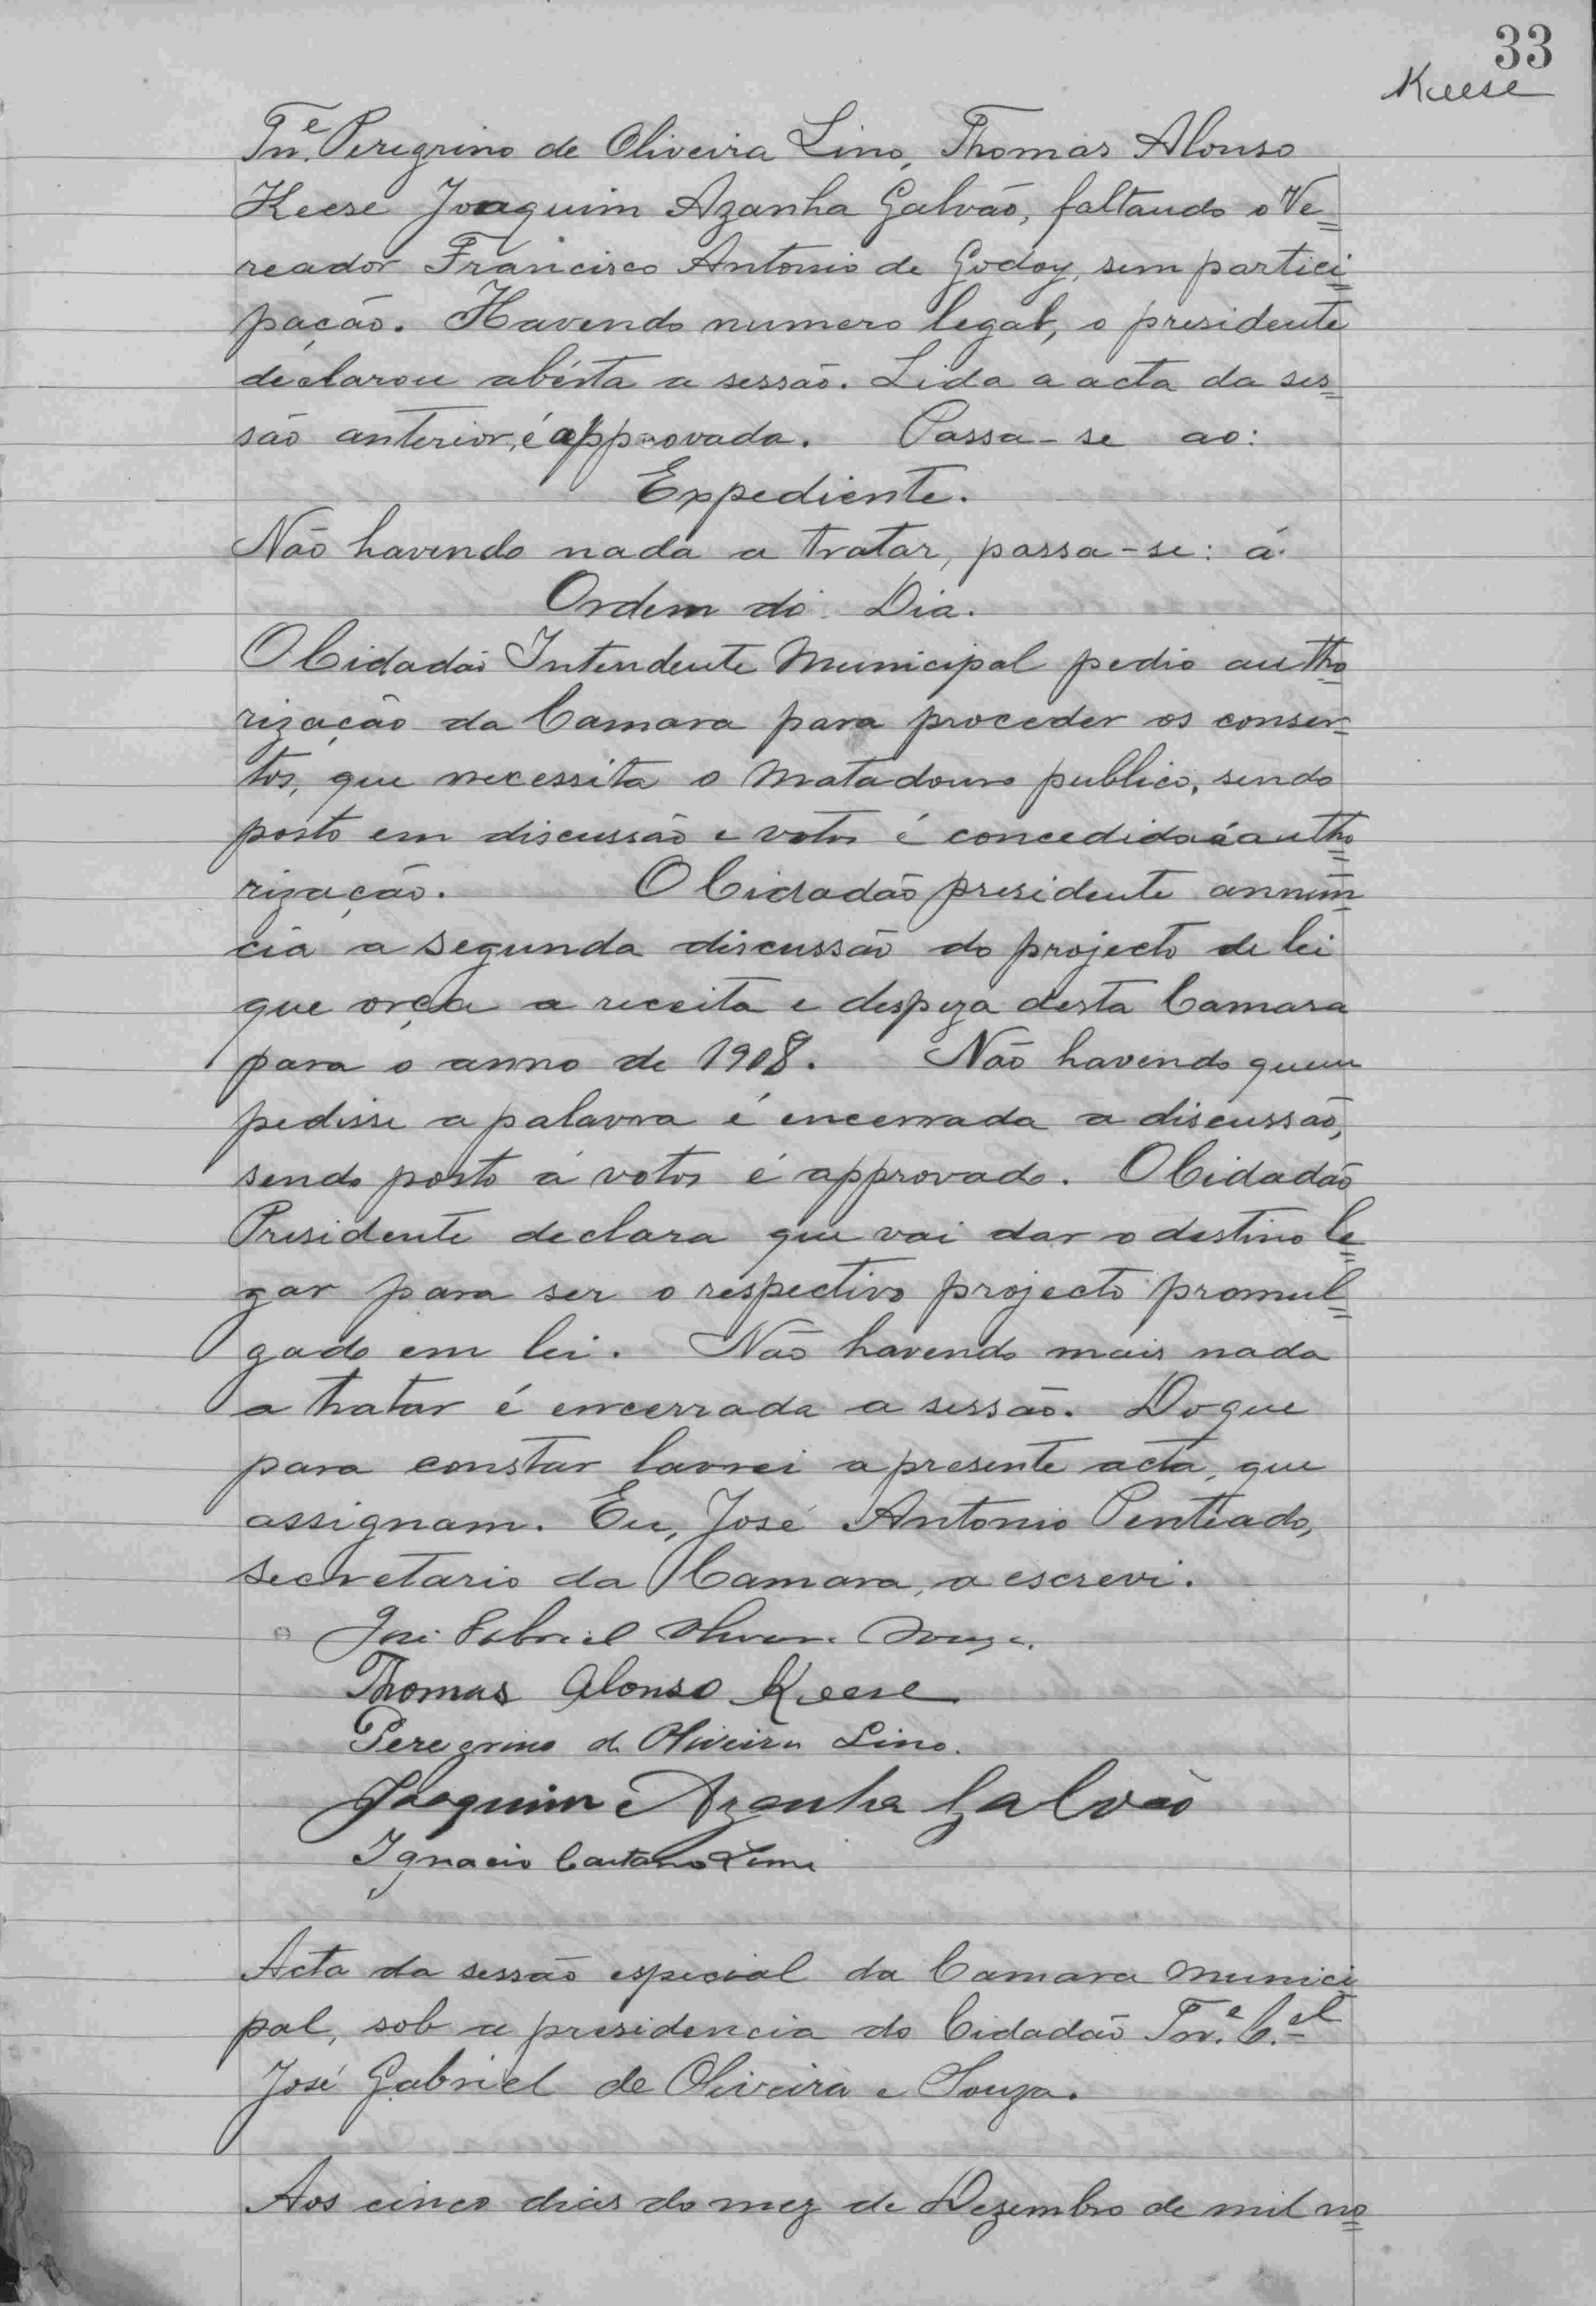 33
Keese
Tn.e Peregrino de Oliveira Lino, Thomas Alonso
Keese Joaquim Azanha Galvão, faltando o Ve=
reador Francisco Antonio de Godoy, sem partici=
pação. Havendo numero legal, o presidente
declarou abérta a sessão. Lida a acta da ses=
são anterior, é approvada. Passa-se ao:
Expediente.
Não havendo nada a tratar, passa-se: á.
Ordem do Dia.
O Cidadão Intendente Municipal pedio autho=
rização da Camara para proceder os conser=
tos, que necessita o Matadouro publico, sendo
posto em discussão e votos é concedida á autho=
rização. O Cidadão presidente annun=
cia a segunda discussão do projecto de lei
que orça a receita e despeza desta Camara
para o anno de 1908. Não havendo quem
pedisse a palavra é encerrada a discussão,
sendo posto á votos é approvado. O Cidadão
Presidente declara que vai dar o destino le=
gar para ser o respectivo projecto promul=
gado em lei. Não havendo mais nada
a tratar é encerrada a sessão. Do que
para constar lavrei a presente acta, que
assignam. Eu, José Antonio Penteado,
secretario da Camara, a escrevi.
José Gabriel Oliveira Souza.
Thomas Alonso Keese
Peregrino de Oliveira Lino.
Joaquim Azanha Galvão
Ignacio Caetano Leme
Acta da sessão especial da Camara Munici=
pal, sob a presidencia do Cidadão Tn.e C.el
José Gabriel de Oliveira e Souza.
Aos cinco dias do mez de Dezembro de mil no=